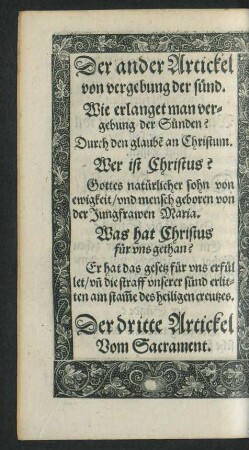 Der ander Artickel
von vergebung der sünd.
Wie erlanget man ver-
gebung der Sünden?
Durch den glaubẽ an Christum.
Wer ist Christus?
Gottes natürlicher sohn von
ewigkeit/vnd mensch geboren von
der Jungfrawen Maria.
Was hat Christus
für vns gethan?
Er hat das gesetz für vns erfül
let/vñ die straff vnserer sünd erlit-
ten am stam̃e des heiligen creutzes.
Der dritte Artickel
Vom Sacrament.